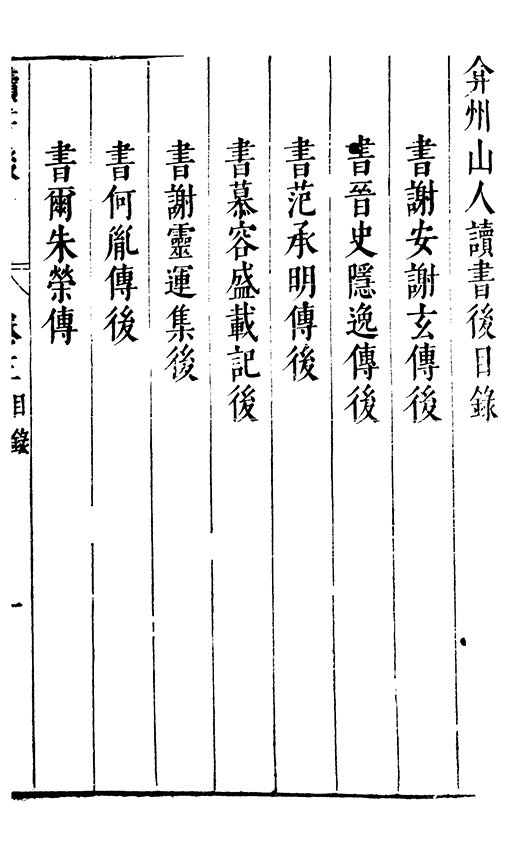 弇州山人讀書後目錄
書謝安謝玄傳後
書晉史隱逸傳後
書范承明傳後
書慕容盛載記後
書謝靈運集後
書何胤傳後
書爾朱榮傳
目錄
一